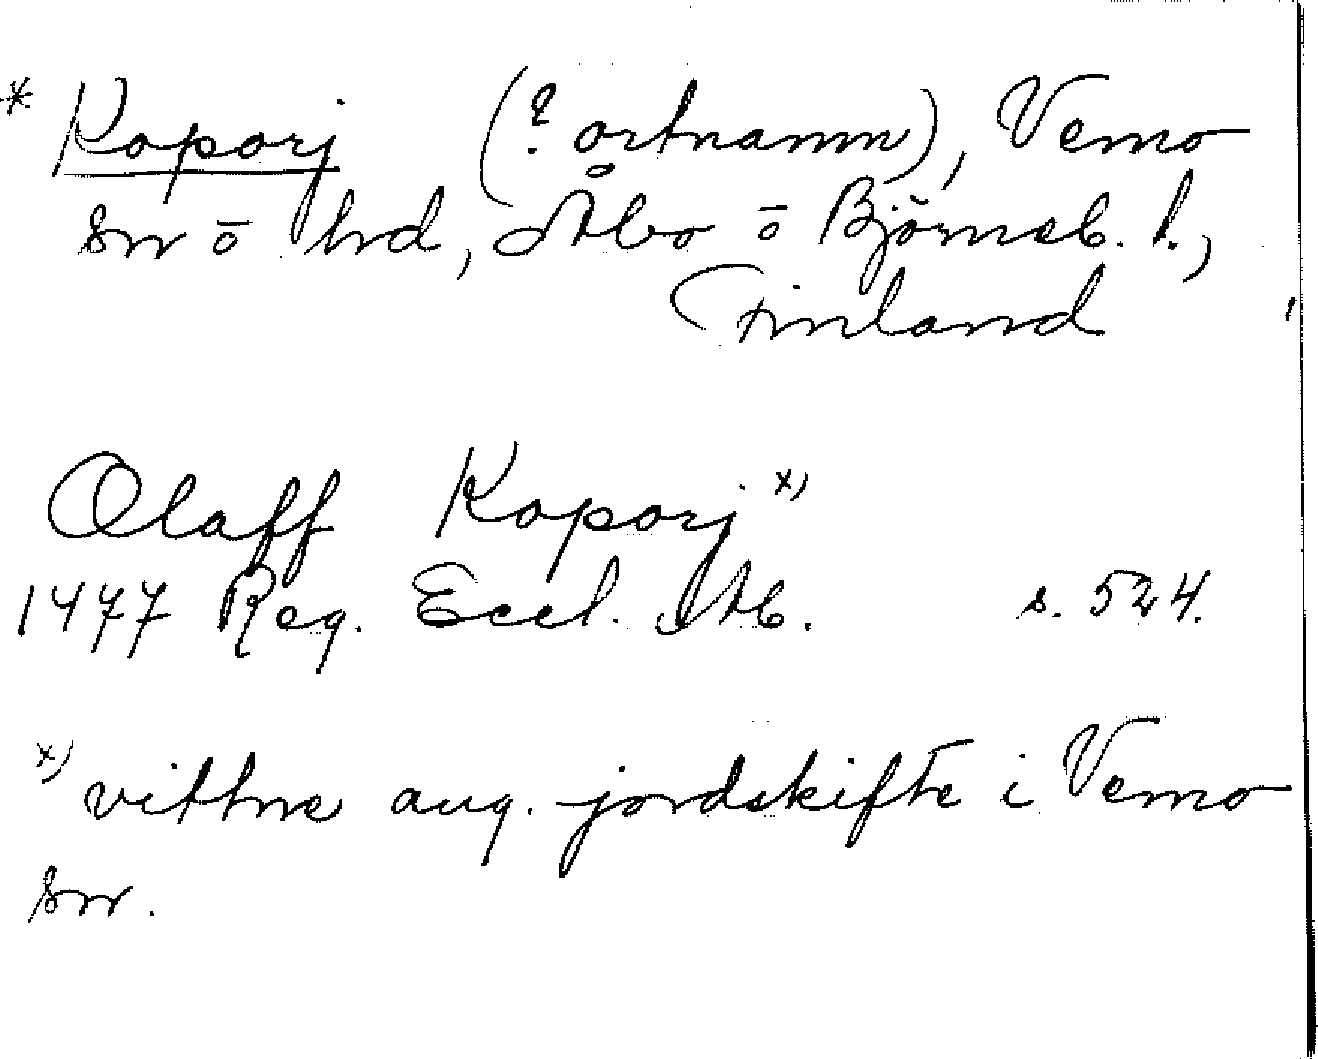 * Koporj (? ortnamn), Vemo
sn o hd, Åbo o Björneb. l.,
Finland
Olaff Koporj x)
1477 Reg. Eccl. Ab. s. 524.
x) vittne ang. jordskifte i Vemo
sn.